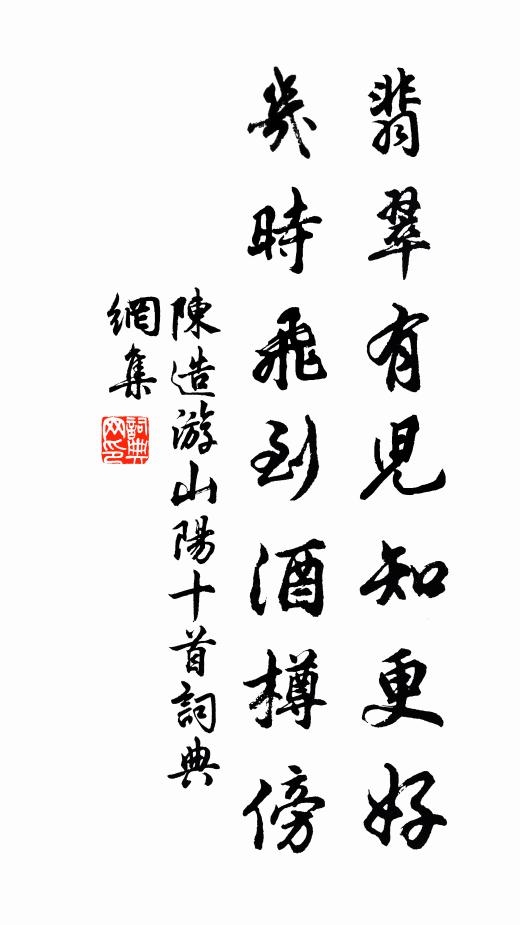 翡翠有児知更好
幾時飛到酒樽傍
陳造游山陽十首詞典
網集
詞典
网印